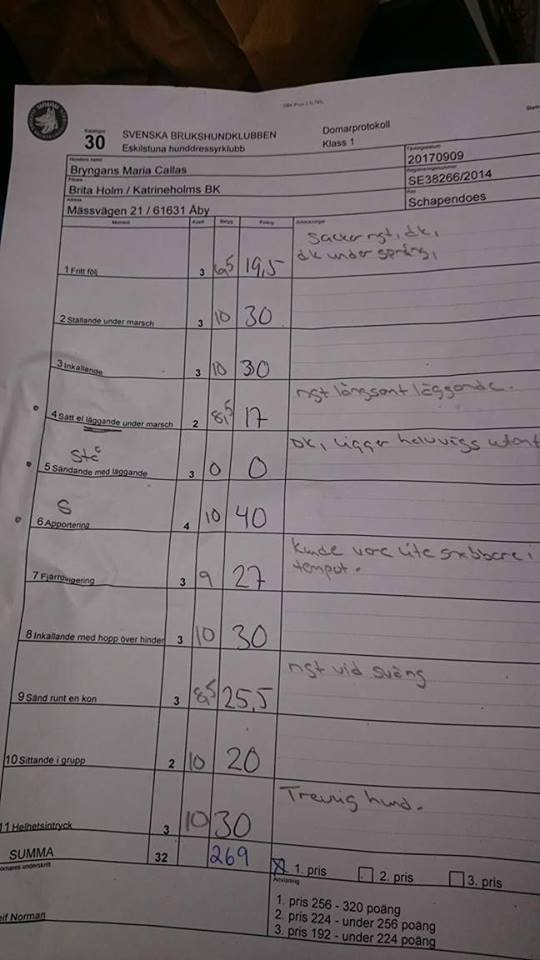 Katalognr
30
SVENSKA BRUKSHUNDKLUBBEN
Eskilstuna hunddressyrklubb
Domarprotokoll
Klass 1
Tävlingsdatum
20170909
Hundens namn
Bryngans Maria Callas
Registreringsnummer
SE38266/2014
Förare
Brita Holm / Katrineholms BK
Ras
Schapendoes
Adress
Mässvägen 21 / 61631 Åby
Moment Koeff Betyg Poäng Anteckningar
1 Fritt följ 3 6,5 19,5 Sackar ngt, dk,
dk under språng,
2 Ställande under marsch 3 10 30
3 Inkallande 3 10 30
4 Sätt el läggande under marsch 2 8,5 17 ngt långsamt läggande.
Stå
5 Sändande med läggande 3 0 0 DK, ligger halvvägs
S
6 Apportering 4 10 40
7 Fjärrdirigering 3 9 27 Kunde vara lite snabbare i
tempot.
8 Inkallande med hopp över hinder 3 10 30
9 Sänd runt en kon 3 8,5 25,5 ngt vid sväng
10 Sittande i grupp 2 10 20
11 Helhetsintryck 3 10 30 Trevlig hund.
SUMMA 32 269
1. pris 2. pris 3. pris
Domarens underskrift
Anvisning
1. pris 256 - 320 poäng
2. pris 224 - under 256 poäng
3. pris 192 - under 224 poäng
eif Norman